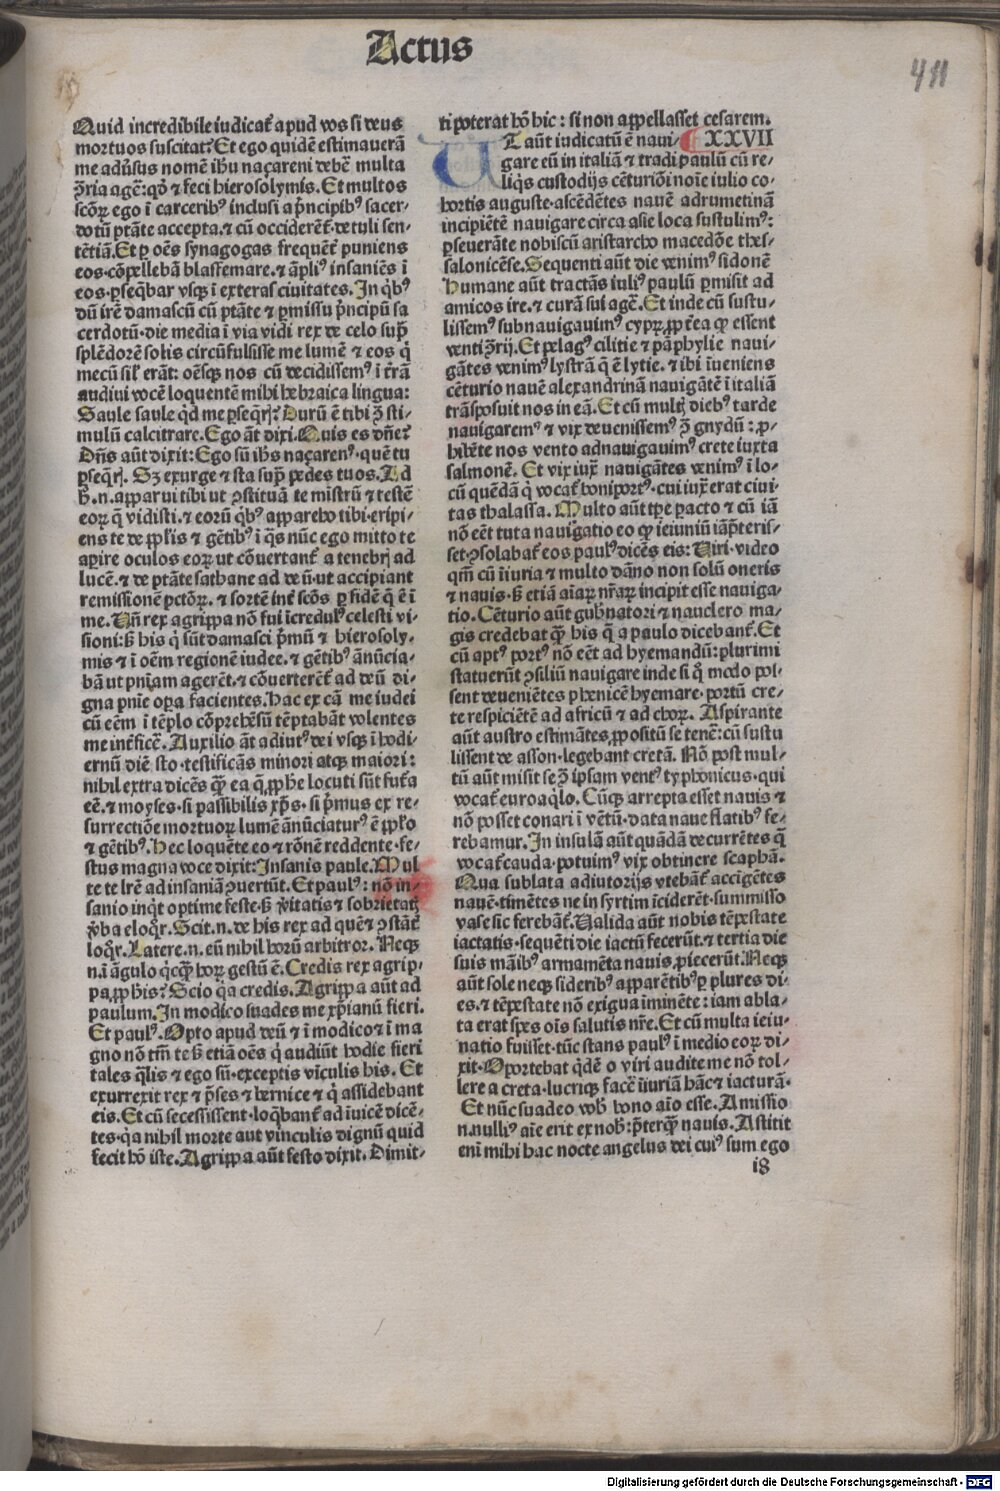 Actus
411
Quid incredibile iudicat̄ apud vos si deus
mortuos suscitat? Et ego quidē estimauerā
me aduersus nomē ihu naçareni debē multa
ꝯ̄ria agē: qđ ⁊ feci hierosolymis. Et multos
scōꝝ ego ī carceribꝰ inclusi a p̄ncipibꝰ sacer-
dotū ptāte accepta. ⁊ cū occiderēt̄. detuli sen-
tētiā. Et ꝑ oēs synagogas frequēt̄ puniens
eos. cōpellebā blasfemare. ⁊ āpliꝰ insaniēs ī
eos. ꝑseq̄bar vsqꝫ ī exteras ciuitates. In q̄bꝰ
dū irē damascū cū ptāte ⁊ ꝑmissu p̄ncipū sa
cerdotū. die media ī via vidi rex de celo supͣ
splēdorē solis circūfulsisse me lumē ⁊ eos q̄
mecū sil̄ erāt: oēsqꝫ nos cū decidissemꝰ ī t̄rā
audiui vocē loquentē mihi hebraica lingua:
Saule saule qͥd me ꝑseq̄rꝭ? Durū ē tibi ꝯ̄ sti-
mulū calcitrare. Ego āt dixi. Quis es dn̄e?
Dn̄s aūt dixit: Ego sū ihs naçarenꝰ. quē tu
ꝑseq̄rꝭ. Sꝫ exurge ⁊ sta supͣ pedes tuos. Ad
h̄. n. apparui tibi ut ꝯstituā te mistrū ⁊ testē
eoꝝ q̄ vidisti. ⁊ eorū q̄bꝰ apparebo tibi. eripi-
ens te de pplīs ⁊ gētibꝰ ī q̄s nūc ego mitto te
aperire oculos eoꝝ. ut cōuertant̄ a tenebrꝭ ad
lucē. ⁊ de ptāte sathane ad deū. ut accipiant
remissionē pctōꝝ. ⁊ sortē int̄ scōs ꝑ fidē q̄ ē ī
me. Vn̄ rex agrippa nō fui īcredulꝰ celesti vi-
sioni: sꝫ his q̄ sūt damasci p̄mū ⁊ hierosoly-
mis ⁊ ī oēm regionē iudee. ⁊ gētibꝰ ānūcia-
bā ut pn̄iam agerēt. ⁊ cōuerterēt̄ ad deū. di-
gna pn̄ie oꝑa facientes. Hac ex cā me iudei
cū eēm ī tēplo cōprehēsū tēptabāt volentes
me int̄ficē. Auxilio āt adiutꝰ dei vsqꝫ ī hodi-
ernū diē sto. testificās minori atqꝫ maiori:
nihil extra dicēs qͣꝫ ea q̄ ꝓphe locuti sūt fut̄a
eē. ⁊ moyses. si passibilis xp̄s. si p̄mus ex re-
surrectiōe mortuoꝝ lumē ānūciaturꝰ ē pplo
⁊ gētibꝰ. Hec loquēte eo ⁊ rōnē reddente. fe-
stus magna voce dixit: Insanis paule. Mul
te te lr̄e ad insaniā ꝯuertūt. Et paulꝰ: nō in-
sanio inqͥt optime feste. sꝫ v̄itatis ⁊ sobrietatꝭ
v̄ba eloqͦr. Scit. n. de his rex ad quē ⁊ ꝯstāt̄
loqͦr. Latere. n. eū nihil horū arbitror. Neqꝫ
n. ī āgulo qͥcqͣꝫ hoꝝ gestū ē. Credis rex agrip-
pa ꝓphis? Scio qͥa credis. Agrippa aūt ad
paulum. In modico suades me xp̄ianū fieri.
Et paulꝰ. Opto apud deū ⁊ ī modico ⁊ ī ma
gno nō tm̄ te sꝫ etiā oēs q̄ audiūt hodie fieri
tales q̄lis ⁊ ego sū. exceptis vīculis his. Et
exurrexit rex ⁊ p̄ses ⁊ bernice ⁊ q̄ assidebant
eis. Et cū secessissent. loq̄bant̄ ad iuicē dicē-
tes. qͥa nihil morte aut vinculis dignū quid
fecit hō iste. Agrippa aūt festo dixit. Dimit-
ti poterat hō hic: si non appellasset cesarem.
UT aūt iudicatū ē naui- XXVII
gare eū in italiā ⁊ tradi paulū cū re-
liqͥs custodijs cēturiōi noīe iulio co-
hortis auguste. ascēdētes nauē adrumetinā
incipiētē nauigare circa asie loca sustulimꝰ:
ꝑseuerāte nobiscū aristarcho macedōe thes-
salonicēse. Sequenti aūt die venimꝰ sidonē
Humane aūt tractās iuliꝰ paulū ꝑmisit ad
amicos ire. ⁊ curā sui agē. Et inde cū sustu-
lissemꝰ subnauigauimꝰ cypꝝ. ꝓpt̄ea qͦ essent
venti ꝯ̄rij. Et pelagꝰ cilitie ⁊ pāphylie naui-
gātes venimꝰ lystrā q̄ ē lytie. ⁊ ibi īueniens
cēturio nauē alexandrinā nauigātē ī italiā
trāsposuit nos in eā. Et cū multꝭ diebꝰ tarde
nauigaremꝰ ⁊ vix deuenissemꝰ ꝯ̄ gnydū: ꝓ-
hibēte nos vento adnauigauimꝰ crete iuxta
salmonē. Et vix iuxͣ nauigātes venimꝰ ī lo-
cū quēdā q̄ vocat̄ boniportꝰ. cui iuxͣ erat ciui-
tas thalassa. Multo aūt tpe ꝑacto ⁊ cū iā
nō eēt tuta nauigatio eo qͦ ieiuniū iāp̄teris-
set. ꝯsolabat̄ eos paulꝰ dicēs eis: Viri. video
qm̄ cū īiuria ⁊ multo dāno non solū oneris
⁊ nauis. sꝫ etiā aīaꝝ nr̄aꝝ incipit esse nauiga-
tio. Cēturio aūt gub̄natori ⁊ nauclero ma-
gis credebat qͣꝫ his q̄ a paulo dicebant̄. Et
cū aptꝰ portꝰ nō eēt ad hyemandū: plurimi
statuerūt ꝯsiliū nauigare inde si qͦ modo pos-
sent deueniētes phenicē hyemare. portū cre-
te respiciētē ad africū ⁊ ad choꝝ. Aspirante
aūt austro estimātes ꝓpositū se tenē: cū sustu
lissent de asson. legebant cretā. Nō post mul-
tū aūt misit se ꝯ̄ ipsam ventꝰ typhonicus. qui
vocat̄ euroaqͥlo. Cūqꝫ arrepta esset nauis ⁊
nō posset conari ī vētū. data naue flatibꝰ fe-
rebamur. In insulā aūt quādā decurrētes q̄
vocat̄ cauda. potuimꝰ vix obtinere scaphā.
Qua sublata adiutorijs vtebāt̄ accigētes
nauē. timētes ne in syrtim īciderēt. summisso
vase sic ferebāt̄. Valida aūt nobis tēpestate
iactatis. sequēti die iactū fecerūt. ⁊ tertia die
suis māibꝰ armamēta nauis ꝓiecerūt. Neqꝫ
aūt sole neqꝫ sideribꝰ apparētibꝰ ꝑ plures di-
es. ⁊ tēpestate nō exigua iminēte: iam abla-
ta erat spes oīs salutis nr̄e. Et cū multa ieiu-
natio fuisset. tūc stans paulꝰ ī medio eoꝝ di-
xit. Oportebat qͥdē o viri audite me nō tol-
lere a creta. lucriqꝫ facē īiuriā hāc ⁊ iacturā.
Et nūc suadeo vob̄ bono aīo esse. Amissio
n. nulliꝰ aīe erit ex nob̄: p̄terqͣꝫ nauis. Astitit
eni mihi hac nocte angelus dei cuiꝰ sum ego
i8
Digitalisierung gefördert durch die Deutsche Forschungsgemeinschaft - DFG